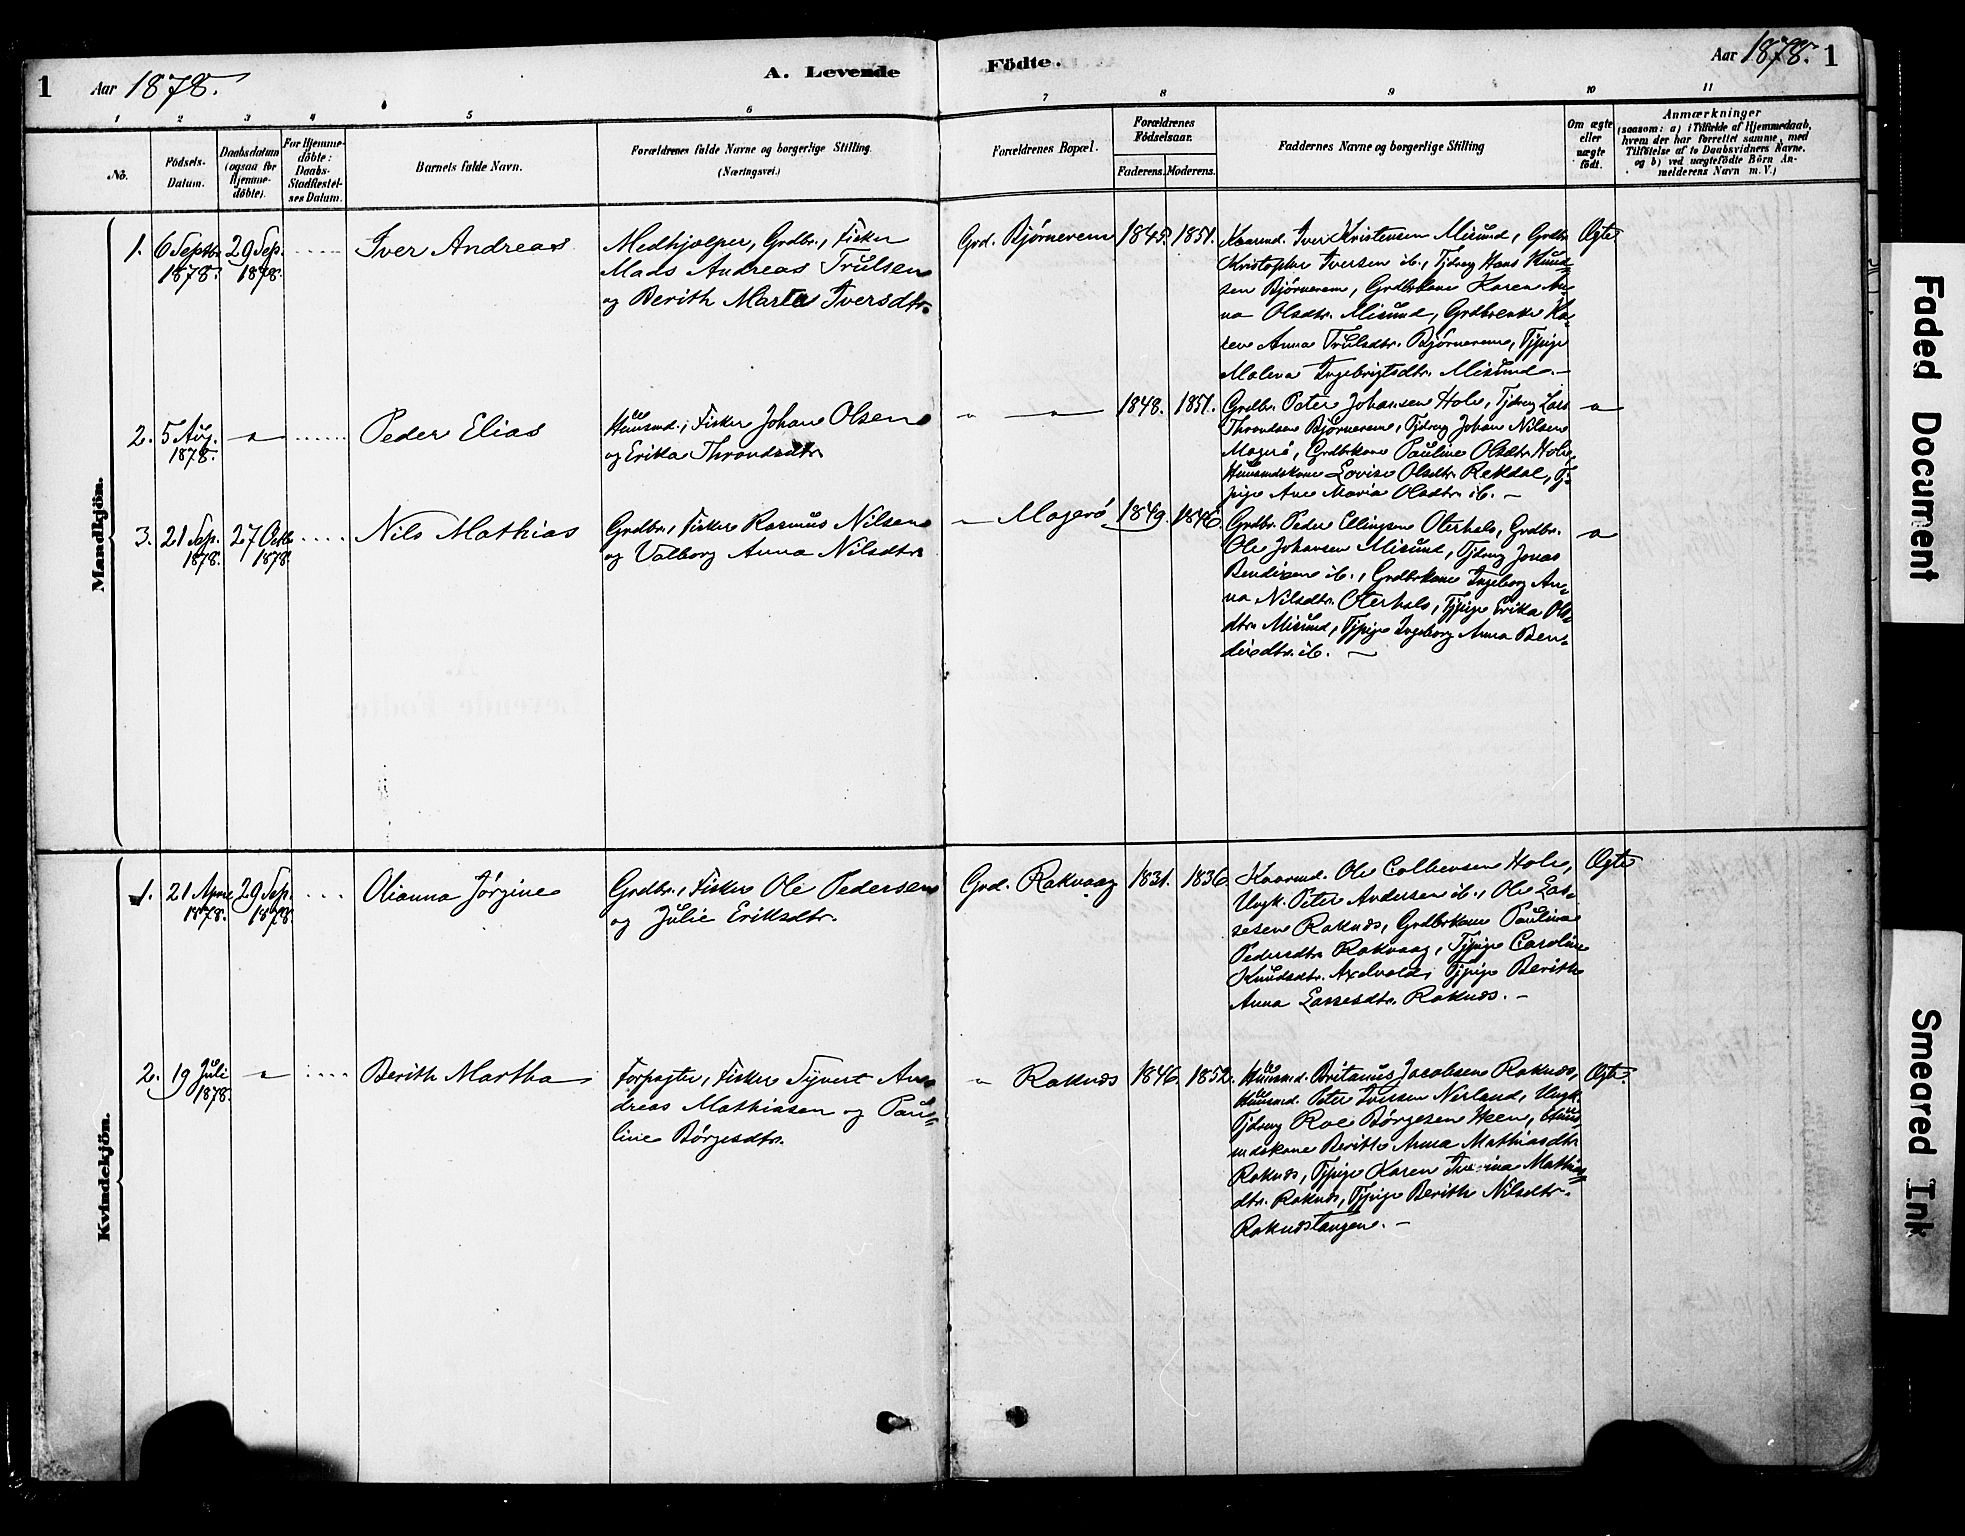 1 Aar 1878. A. Levende Fødte. Aar 1878. 1
1 2 3 4 5 6 7 8 9 10 11
No.
Födsels-
Datum.
Daabsdatum
(ogsaa for
Hjemme-
døbte).
For Hjemme-
døbte:
Daabs-
Stadfæstel-
ses Datum.
Barnets fulde Navn.
Forældrenes fulde Navne og borgerlige Stilling
(Næringsvei.)
Forældrenes Bopæl.
Forældrenes
Födselsaar.
Faderens. Moderens.
Faddernes Navne og borgerlige Stilling
Om ægte
eller
uægte
født.
Anmærkninger
(saasom: a) i Tilfælde af Hjemmedaab,
hvem der har forrettet samme, med
Tilføielse af to Daabsvidners Navne.
og b) ved uægtefödte Börn An-
melderens Navn m. V.)
Mandkjön.
1. 6 Septbr. 1878. 29 Sep. 1878. Iver Andreas
Medhjælper, Grdbr., Fisker
Mads Andreas Trulsen
og Berith Marta Iversdtr.
Grd. Bjørnerem 1845. 1851.
Kaarmd. Iver Kristensen Misund, Grdbr.
Kristopher Iversen ib., Tjdreng Hans Knud-
sen Bjørnerem, Grdbrkone Karen An-
na Olsdtr. Misund, Grdbrenke Ka-
ren Anna Trulsdtr. Bjørnerem, Tjpige
Malena Ingebrigtsdtr. Misund. -
Ægte
2. 5 Aug. 1878. - " - Peder Elias
Huusmd., Fisker Johan Olsen
og Erikka Throndsdtr.
" - " - 1848. 1851.
Grdbr. Peter Johansen Hole, Tjdreng Lars
Throndsen Bjørnerem, Tjdreng Johan Nilsen
Magerö, Grdbrkone Pauline Olsdtr. Hole,
Huusmdskone Lovise Olsdtr. Rekdal, Tj-
pige Ane Maria Olsdtr. ib. -
- " -
3. 21 Sep. 1878. 27 Octb. 1878. Nils Mathias
Grdbr., Fisker Rasmus Nilsen
og Valborg Anna Nilsdtr.
" Magerö 1849. 1846.
Grdbr. Peder Ellingsen Oterhals, Grdbr.
Ole Johansen Misund, Tjdreng Jonas
Bendixen ib., Grdbrkone Ingeborg An-
na Nilsdtr. Oterhals, Tjpige Erika Ols-
dtr. Misund, Tjpige Ingeborg Anna Ben-
dixdtr. ib. -
- " -
Kvindekjön.
1. 21 April 1878. 29 Sep. 1878. Olianna Jørgine
Grdbr., Fisker Ole Pedersen
og Julie Eriksdtr.
Grd. Rakvaag 1831. 1836.
Kaarmd. Ole Colbensen Hole,
Ungk. Peter Andersen ib., Ole Las-
sesen Raknæs, Grdbrkone Paulina
Pedersdtr. Rakvaag, Tjpige Caroline
Knudsdtr. Axelvold, Tjpige Berith
Anna Lassesdtr. Raknæs. -
Ægte
2. 19 Juli 1878. - " - Berith Martha
Forpagter, Fisker Syvert An-
dreas Mathiasen og Pau-
line Børgesdtr.
" Raknæs 1846. 1852.
Huusmd. Britanus Jacobsen Raknæs,
Huusmd. Peter Iversen Nerland, Ungk.
Tjdreng Roe Børgesen Heen, Huus-
mdskone Berithe Anna Mathiasdtr.
Raknæs, Tjpige Karen Mathias-
dtr. Raknæs, Tjpige Berith Nilsdtr.
Raknæstangen. -
Ægte.
Faded Document
Smeared Ink